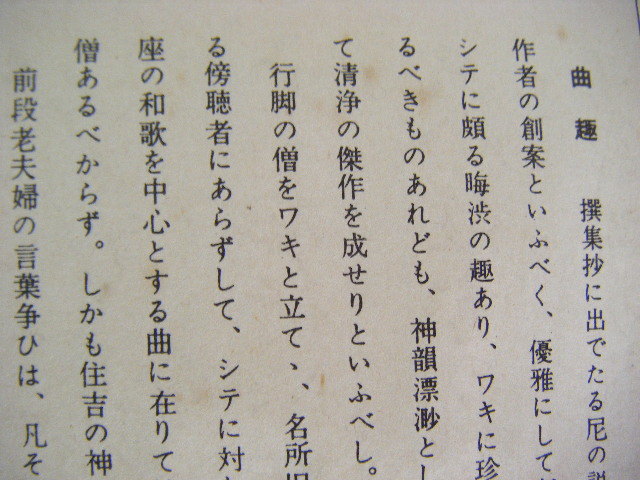 曲趣　撰集抄に出でたる尼の説
作者の創案といふべく、優雅にして
シテに頗る晦渋の趣あり、ワキに珍
るべきものあれども、神韻漂渺とし
て清浄の傑作を成せりといふべし。
行脚の僧をワキと立てゝ、名所旧
る傍聴者にあらずして、シテに対
座の和歌を中心とする曲に在りて
僧あるべからず。しかも住吉の神
前段老夫婦の言葉争ひは、凡そ